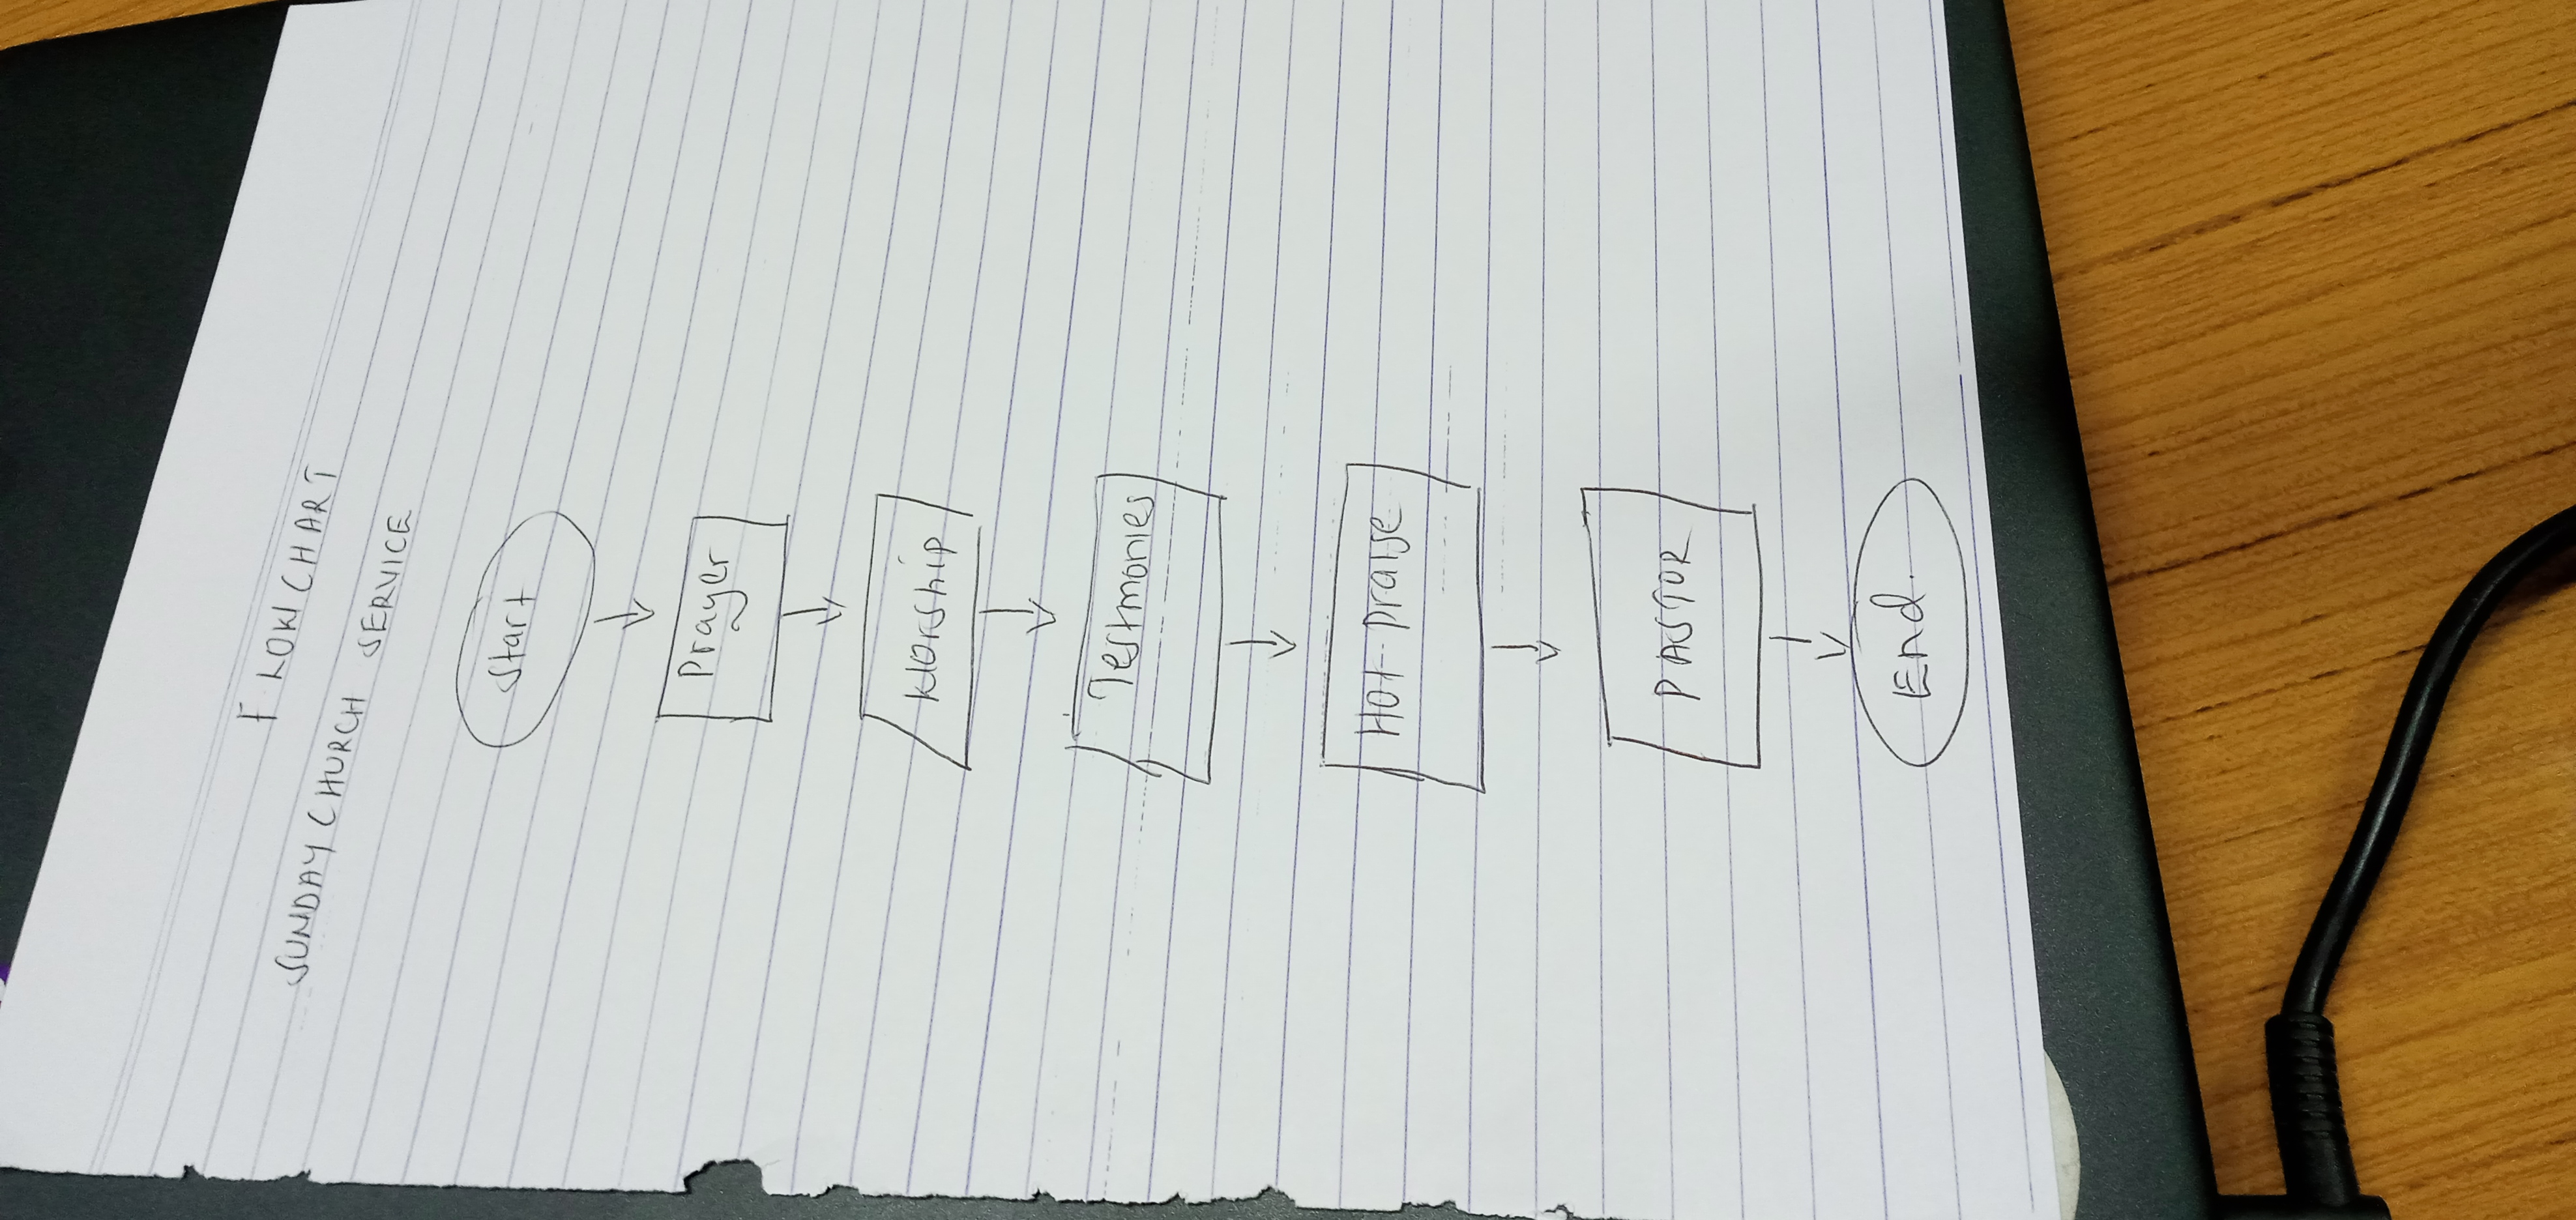 FLOW CHART
SUNDAY CHURCH SERVICE
Start
Prayer
Worship
Testmonies
Hot praise
PASTOR
End.